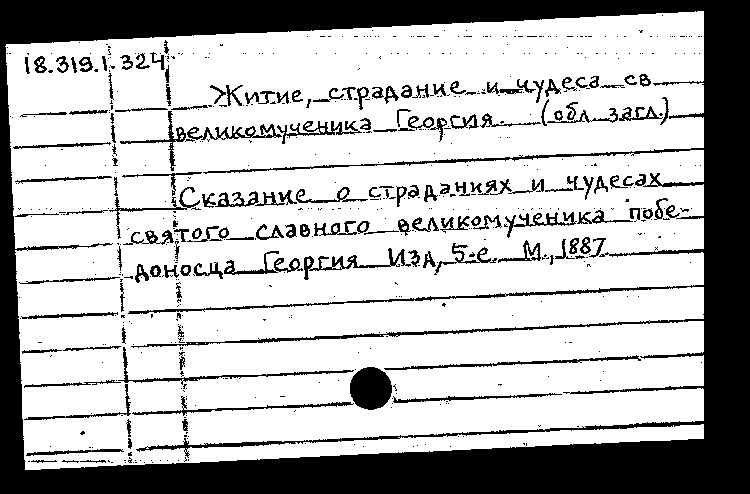 18.319.1.324
Житие, страдание и чудеса св
великомученика Георгия. (обл. загл.)
Сказание о страданиях и чудесах
святого славного великомученика побе-
доносца Георгия Изд, 5-е. М., 1887